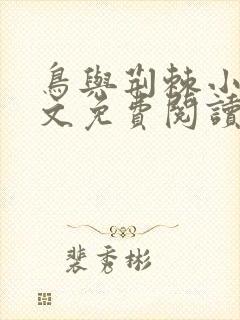 鳥與荊棘小
文免費閱讀
裴秀彬